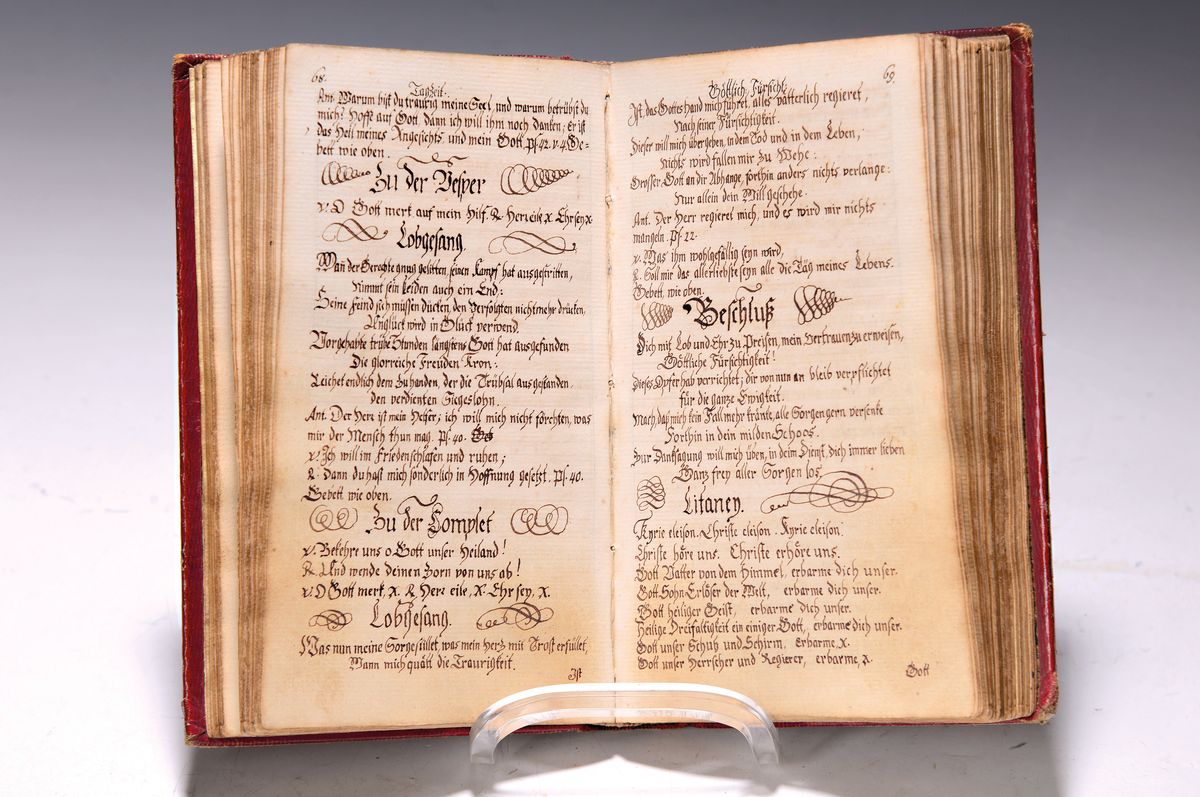 68.
Tagzeit.
Ant. Warum bist du traurig meine Seel, und warum betrübst du
mich? Hoffe auf Gott dann ich will ihm noch danken; Er ist
das Heil meines Angesichts und mein Gott. Ps. 42. v. 4. Ge-
bett wie oben.
Zu der Vesper
℣. O Gott merk auf mein Hilf. ℟. Herr eile x. Ehr sey x.
Lobgesang.
Wan der Gerechte gnug gelitten, seinen Kampf hat ausgestritten,
Nimmt sein Leiden auch ein End:
Seine Feind sich müssen bucken, den Verfolgten nicht mehr drucken,
Unglück wird in Glück verwend.
Vorgehabte trübe Stunden längstens Gott hat ausgefunden
Die glorreiche Freuden Kron:
Reichet endlich dem zuhanden, der die Trübsal ausgestanden,
den verdienten Siegeslohn.
Ant. Der Herr ist mein Helfer; ich will mich nicht förchten, was
mir der Mensch thun mag. Ps. 40.
℣. Ich will im Frieden schlafen und ruhen;
℟. Dann du hast mich sonderlich in Hoffnung gesetzt. Ps. 40.
Gebett wie oben.
Zu der Complet
℣. Bekehre uns o Gott unser Heiland!
℟. Und wende deinen Zorn von uns ab!
℣. O Gott merk, x. ℟. Herr eile, x. Ehr sey, x.
Lobgesang.
Was nun meine Sorge stillet, was mein Herz mit Trost erfüllet,
Wann mich quält die Traurigkeit.
Ist
69.
Göttlich. Fürsicht.
Ist, das Gottes Hand mich führet, alles vätterlich regieret,
Nach seiner Fürsichtigkeit.
Dieser will mich übergeben, in dem Tod und in dem Leben,
Nichts wird fallen mir zu Wehe:
Grosser Gott an dir ich hange, forthin anders nichts verlange:
Nur allein dein Will geschehe.
Ant. Der Herr regieret mich, und es wird mir nichts
mangeln. Ps. 22.
℣. Was ihm wohlgefällig seyn wird,
℟. Soll mir das allerliebste seyn alle die Täg meines Lebens.
Gebett, wie oben.
Beschluß
Dich mit Lob und Ehr zu Preisen, mein Vertrauen zu erweisen,
Göttliche Fürsichtigkeit!
Dieses Opfer hab verrichtet; dir von nun an bleib verpflichtet
für die ganze Ewigkeit.
Mach, daß mich kein Fall mehr kränke, alle Sorgen gern versenke
Forthin in dein milden Schoos.
Zur Danksagung will mich üben, in deim Dienst, dich immer lieben
Ganz frey aller Sorgen los.
Litaney.
Kyrie eleison. Christe eleison. Kyrie eleison.
Christe höre uns. Christe erhöre uns.
Gott Vatter von dem Himmel, erbarme dich unser.
Gott Sohn Erlöser der Welt, erbarme dich unser.
Gott heiliger Geist, erbarme dich unser.
Heilige Dreifaltigkeit ein einiger Gott, erbarme dich unser.
Gott unser Schutz und Schirm, erbarme, x.
Gott unser Herrscher und Regierer, erbarme, x.
Gott